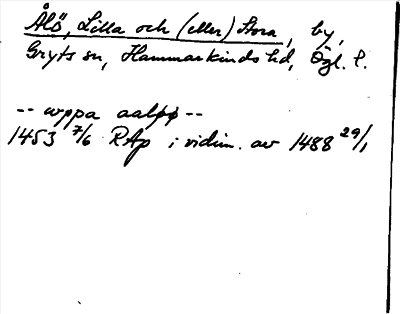 Ålö, Lilla och (eller) Stora, by,
Gryts sn, Hammarkinds hd, Ögl. l.
-- wppa aaløø --
1453 7/6 RAp i vidim. av 1488 29/1